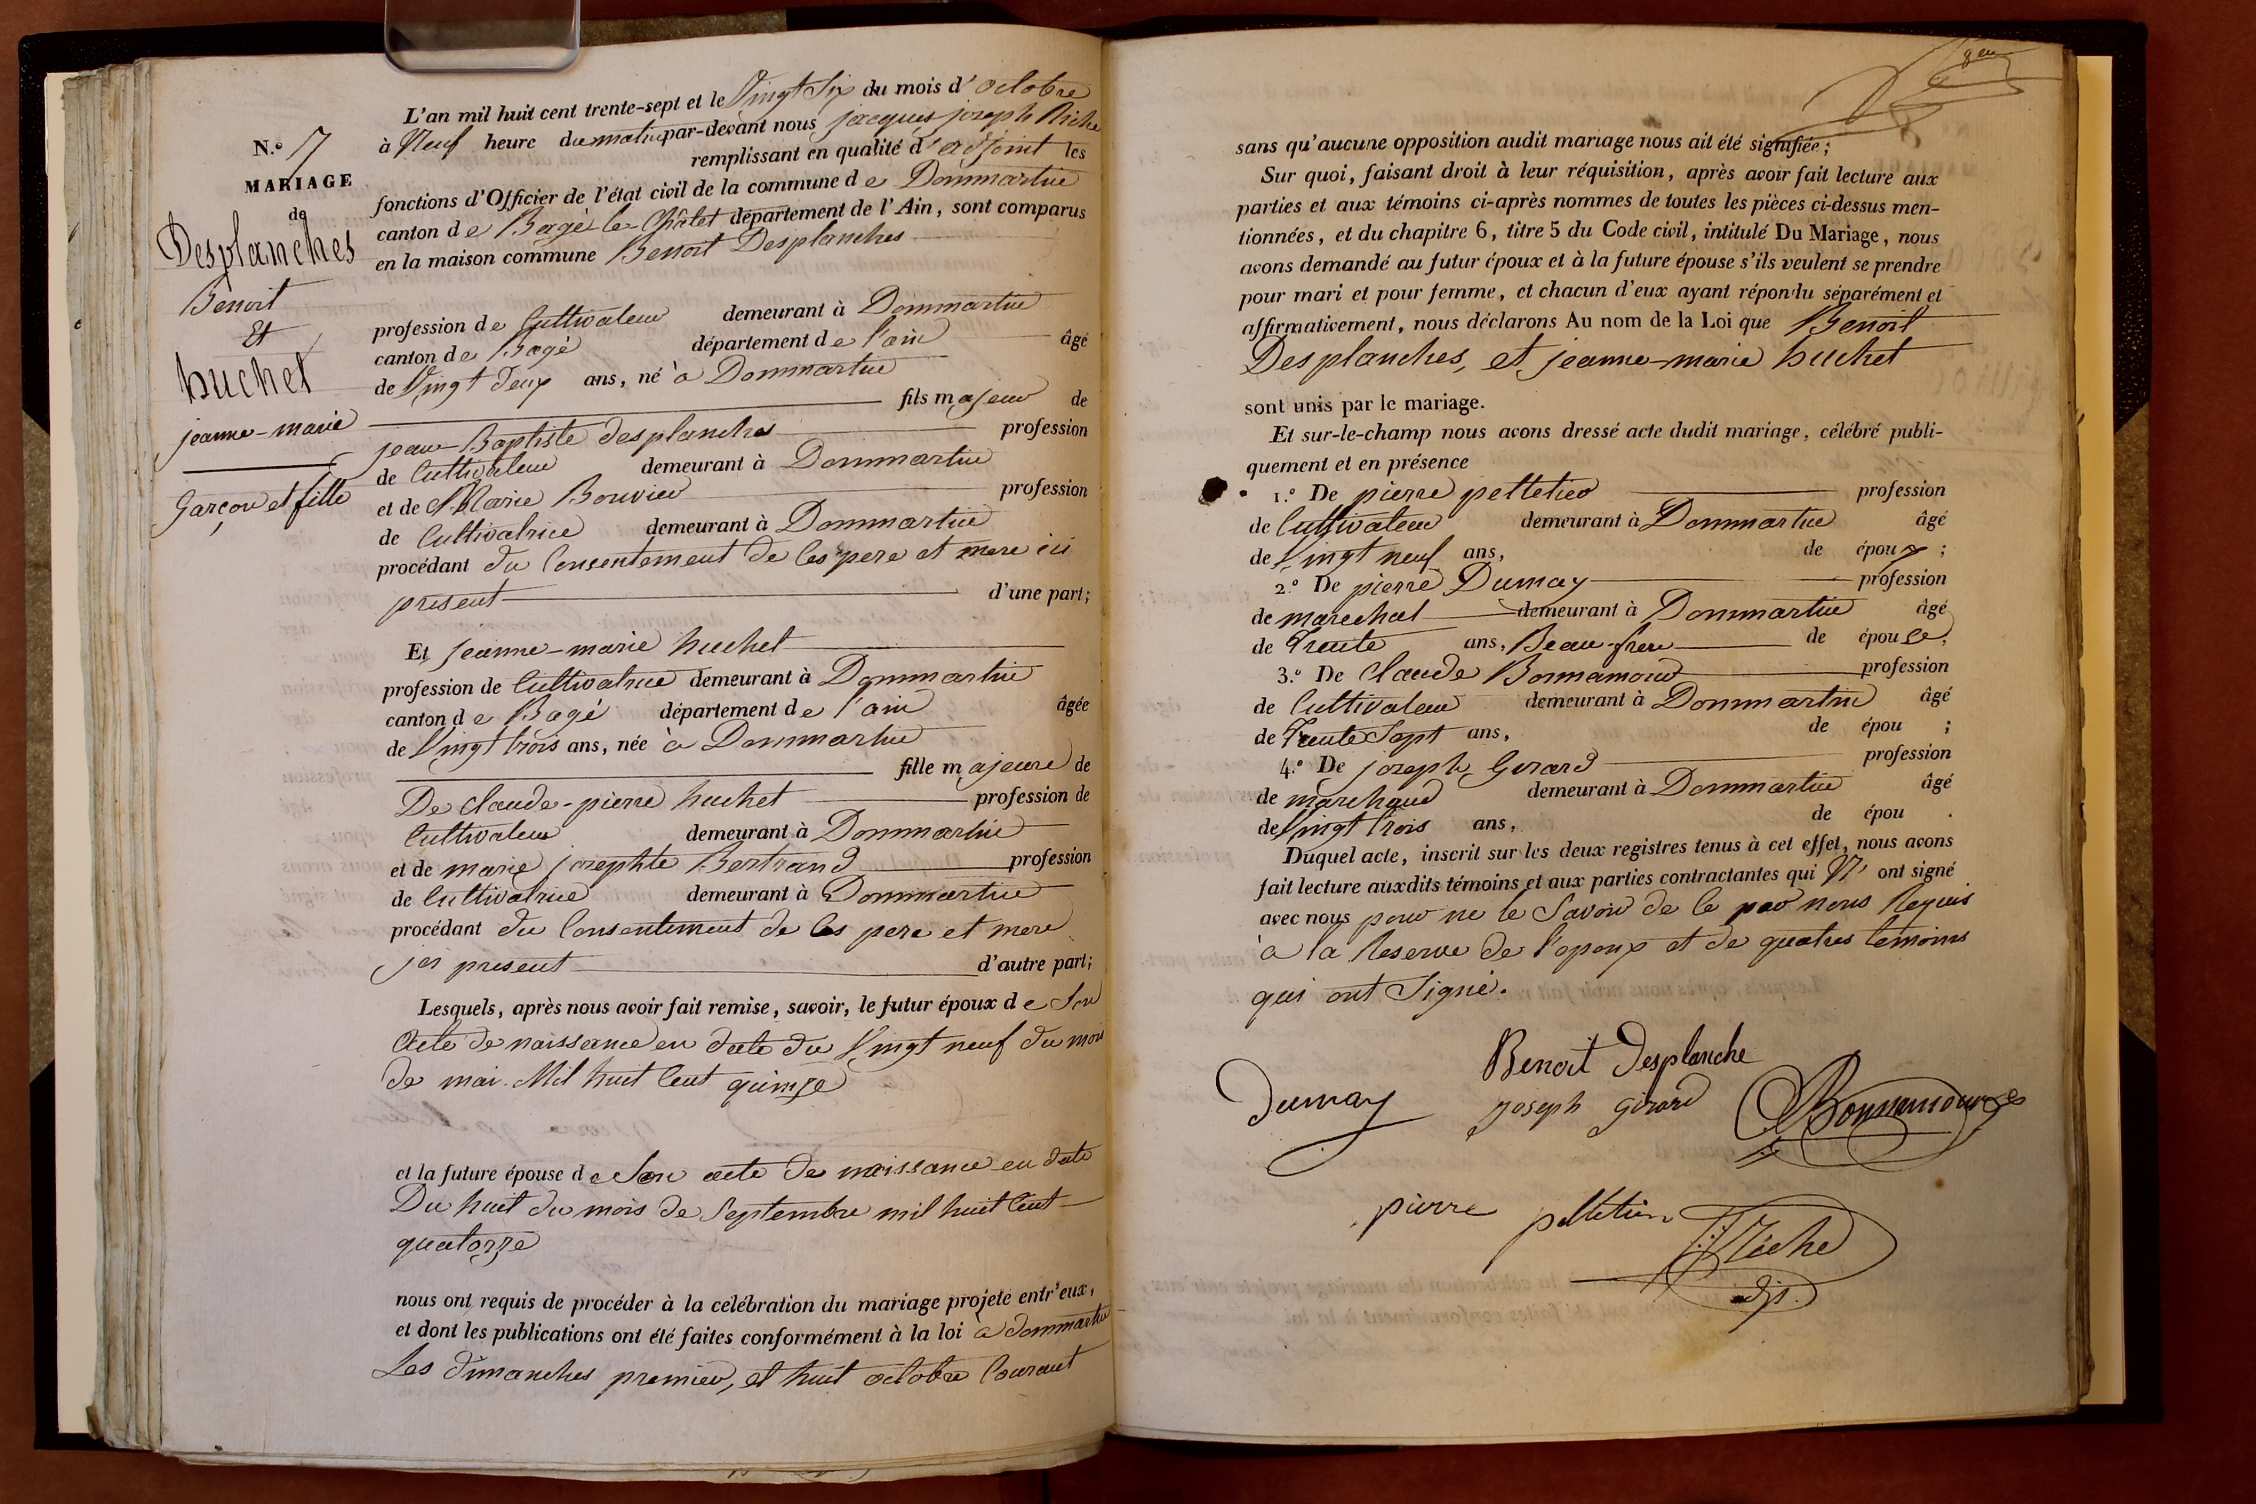 N.º 7
MARIAGE
de
Desplanches
Benoit
Et
huchet
jeanne-marie
Garçon et fille
L'an mil huit cent trente-sept et le Vingt Six du mois d'octobre
à Neuf heure du matin par-devant nous jacques joseph Riche
remplissant en qualité d'adjoint les
fonctions d'Officier de l'état civil de la commune de Dommartin
canton de Bagé le Châtel département de l'Ain, sont comparus
en la maison commune Benoit Desplanches
profession de Cultivateur demeurant à Dommartin
canton de Bagé département de l'ain âgé
de Vingt deux ans, né à Dommartin
fils majeur de
jean-Baptiste desplanches profession
de Cultivateur demeurant à Dommartin
et de Marie Bouvier profession
de Cultivatrice demeurant à Dommartin
procédant du Consentement de Ces pere et mere ici
present d'une part;
Et jeanne-marie huchet
profession de Cultivatrice demeurant à Dommartin
canton de Bagé département de l'ain âgée
de Vingt trois ans, née à Dommartin
fille majeure de
De Claude-pierre huchet profession de
Cultivateur demeurant à Dommartin
et de marie josephte Bertrand profession
de Cultivatrice demeurant à Dommartin
procédant du Consentement de Ces pere et mere
present d'autre part;
Lesquels, après nous avoir fait remise, savoir, le futur époux de Son
Acte de naissance en date du Vingt neuf du mois
de mai Mil huit Cent quinze
et la future épouse de Son acte de naissance en date
Du huit du mois de Septembre mil huit Cent
quatorze
nous ont requis de procéder à la célébration du mariage projeté entr'eux,
et dont les publications ont été faites conformément à la loi à dommartin
Les dimanches premier, et huit octobre Courant
sans qu'aucune opposition audit mariage nous ait été signifiée;
Sur quoi, faisant droit à leur réquisition, après avoir fait lecture aux
parties et aux témoins ci-après nommes de toutes les pièces ci-dessus men-
tionnées, et du chapitre 6, titre 5 du Code civil, intitulé Du Mariage, nous
avons demandé au futur époux et à la future épouse s'ils veulent se prendre
pour mari et pour femme, et chacun d'eux ayant répondu séparément et
affirmativement, nous déclarons Au nom de la Loi que Benoit
Desplanches, et jeanne-marie huchet
sont unis par le mariage.
Et sur-le-champ nous avons dressé acte dudit mariage, célébré publi-
quement et en présence
1.º De pierre pelletier profession
de Cultivateur demeurant à Dommartin âgé
de Vingt neuf ans, de époux;
2.º De pierre Dumay profession
de marechal demeurant à Dommartin âgé
de Trente ans, Beau-frere de épouse;
3.º De Claude Bonnamour profession
de Cultivateur demeurant à Dommartin âgé
de Trente Sept ans, de épou ;
4.º De joseph Girard profession
de marchand demeurant à Dommartin âgé
de Vingt trois ans, de épou .
Duquel acte, inscrit sur les deux registres tenus à cet effet, nous avons
fait lecture auxdits témoins et aux parties contractantes qui N' ont signé
avec nous pour ne le Savoir de Ce par nous Requis
à la Reserve de l'epoux et de quatres temoins
qui ont Signé.
Benoit desplanche
Dumay joseph girard Bonnamour
pierre pelletier
JJ Riche
adj.